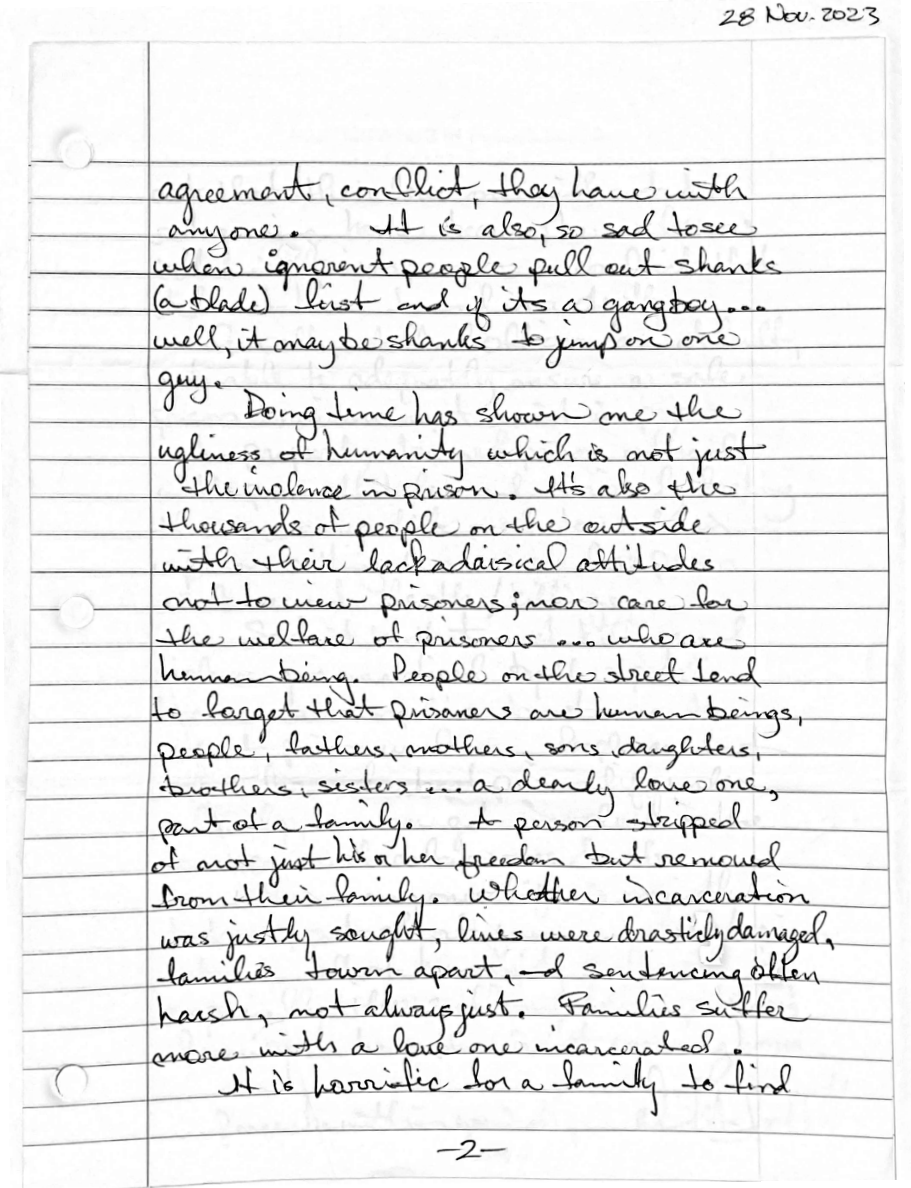 28 Nov. 2023
agreement, conflict, they have with
anyone. It is also, so sad to see
when ignorent people pull out shanks
(a blade) first and if its a gangboy...
well, it maybe shanks to jump on one
guy.
Doing time has shown me the
ugliness of humanity which is not just
the violence in prison. It's also the
thousands of people on the outside
with their lackadaisical attitudes
not to view prisoners; nor care for
the welfare of prisoners ... who are
human being. People on the street tend
to forget that prisoners are human beings,
people, fathers, mothers, sons, daughters,
brothers, sisters ... a dearly love one,
part of a family. A person stripped
of not just his or her freedom but removed
from their family. Whether incarceration
was justly sought, lives were drasticly damaged,
families tourn apart, and sentencing often
harsh, not always just. Families suffer
more with a love one incarcerated.
It is horrific for a family to find
-2-